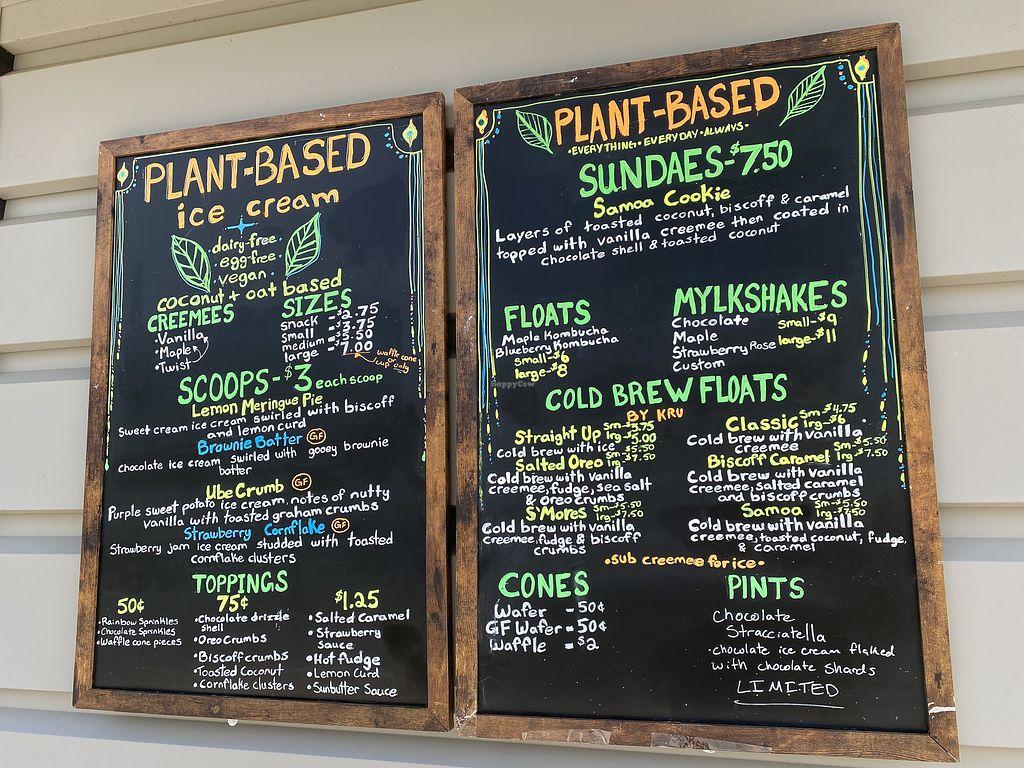 PLANT-BASED
ice cream
dairy-free
egg-free
vegan
coconut + oat based
CREEMEES
• Vanilla
• Maple
• Twist
SIZES
snack - $2.75
small - $3.75
medium - $5.50
large - $7.00
waffle cone
or
cup only
SCOOPS - $3 each scoop
Lemon Meringue Pie
Sweet cream ice cream swirled with biscoff
and lemon curd
Brownie Batter GF
chocolate ice cream swirled with gooey brownie
batter
Ube Crumb GF
Purple sweet potato ice cream, notes of nutty
vanilla with toasted graham crumbs
Strawberry Cornflake GF
Strawberry jam ice cream studded with toasted
cornflake clusters
TOPPINGS
50¢
• Rainbow Sprinkles
• Chocolate Sprinkles
• Waffle cone pieces
75¢
• Chocolate drizzle
shell
• Oreo Crumbs
• Biscoff crumbs
• Toasted Coconut
• Cornflake clusters
$1.25
• Salted Caramel
• Strawberry
Sauce
• Hot fudge
• Lemon Curd
• Sunbutter Sauce
PLANT-BASED
• EVERYTHING • EVERYDAY • ALWAYS •
SUNDAES - $7.50
Samoa Cookie
Layers of toasted coconut, biscoff & caramel
topped with vanilla creemee then coated in
chocolate shell & toasted coconut
FLOATS
Maple Kombucha
Blueberry Kombucha
small - $6
large - $8
MYLKSHAKES
Chocolate
Maple
Strawberry Rose
Custom
small - $9
large - $11
HappyCow
COLD BREW FLOATS
BY KRU
Straight Up sm - $3.75
lrg - $5.00
Cold brew with ice
Salted Oreo sm - $5.50
lrg - $7.50
Cold brew with vanilla
creemee, fudge, sea salt
& oreo crumbs
S'Mores sm - $5.50
lrg - $7.50
Cold brew with vanilla
creemee, fudge & biscoff
crumbs
Classic sm - $4.75
lrg - $6
Cold brew with vanilla
creemee
Biscoff Caramel sm - $5.50
lrg - $7.50
Cold brew with vanilla
creemee, salted caramel
and biscoff crumbs
Samoa sm - $5.50
lrg - $7.50
Cold brew with vanilla
creemee, toasted coconut, fudge,
& caramel
• sub creemee for ice •
CONES
Wafer - 50¢
GF Wafer - 50¢
Waffle - $2
PINTS
Chocolate
Stracciatella
- chocolate ice cream flecked
with chocolate shards
LIMITED